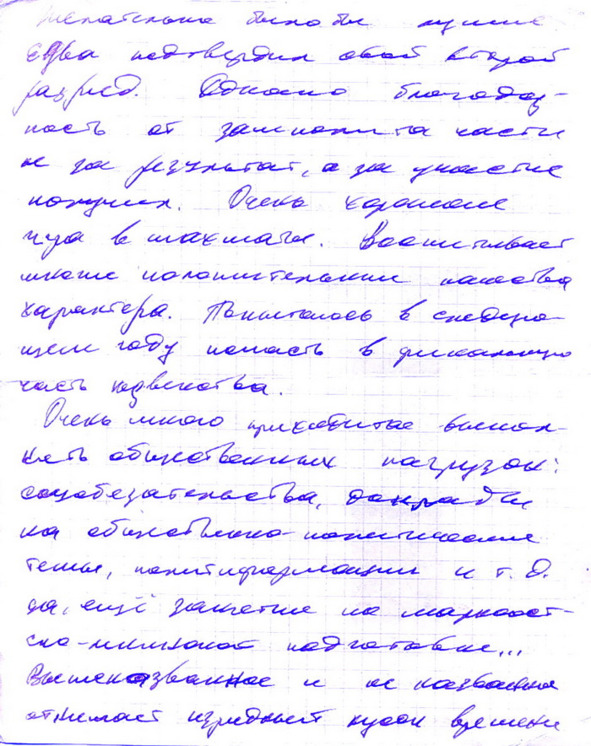 желательно было бы лучше
едва подтвердил свой второй
разряд. Однако благодар-
ность от замполита части
не за результат, а за участие
получил. Очень хорошая
игра в шахматы. Воспитывает
многие положительные качества
характера. Попытаюсь в следую-
щем году попасть в финальную
часть первенства.
Очень много приходится выпол-
нять общественных нагрузок:
соцобязательства, доклады
на общественно-политические
темы, политинформации и т. д.
да, ещё занятие по марксист-
ско-ленинской подготовке...
Вышеназванное и не названное
отнимает изрядный кусок времени